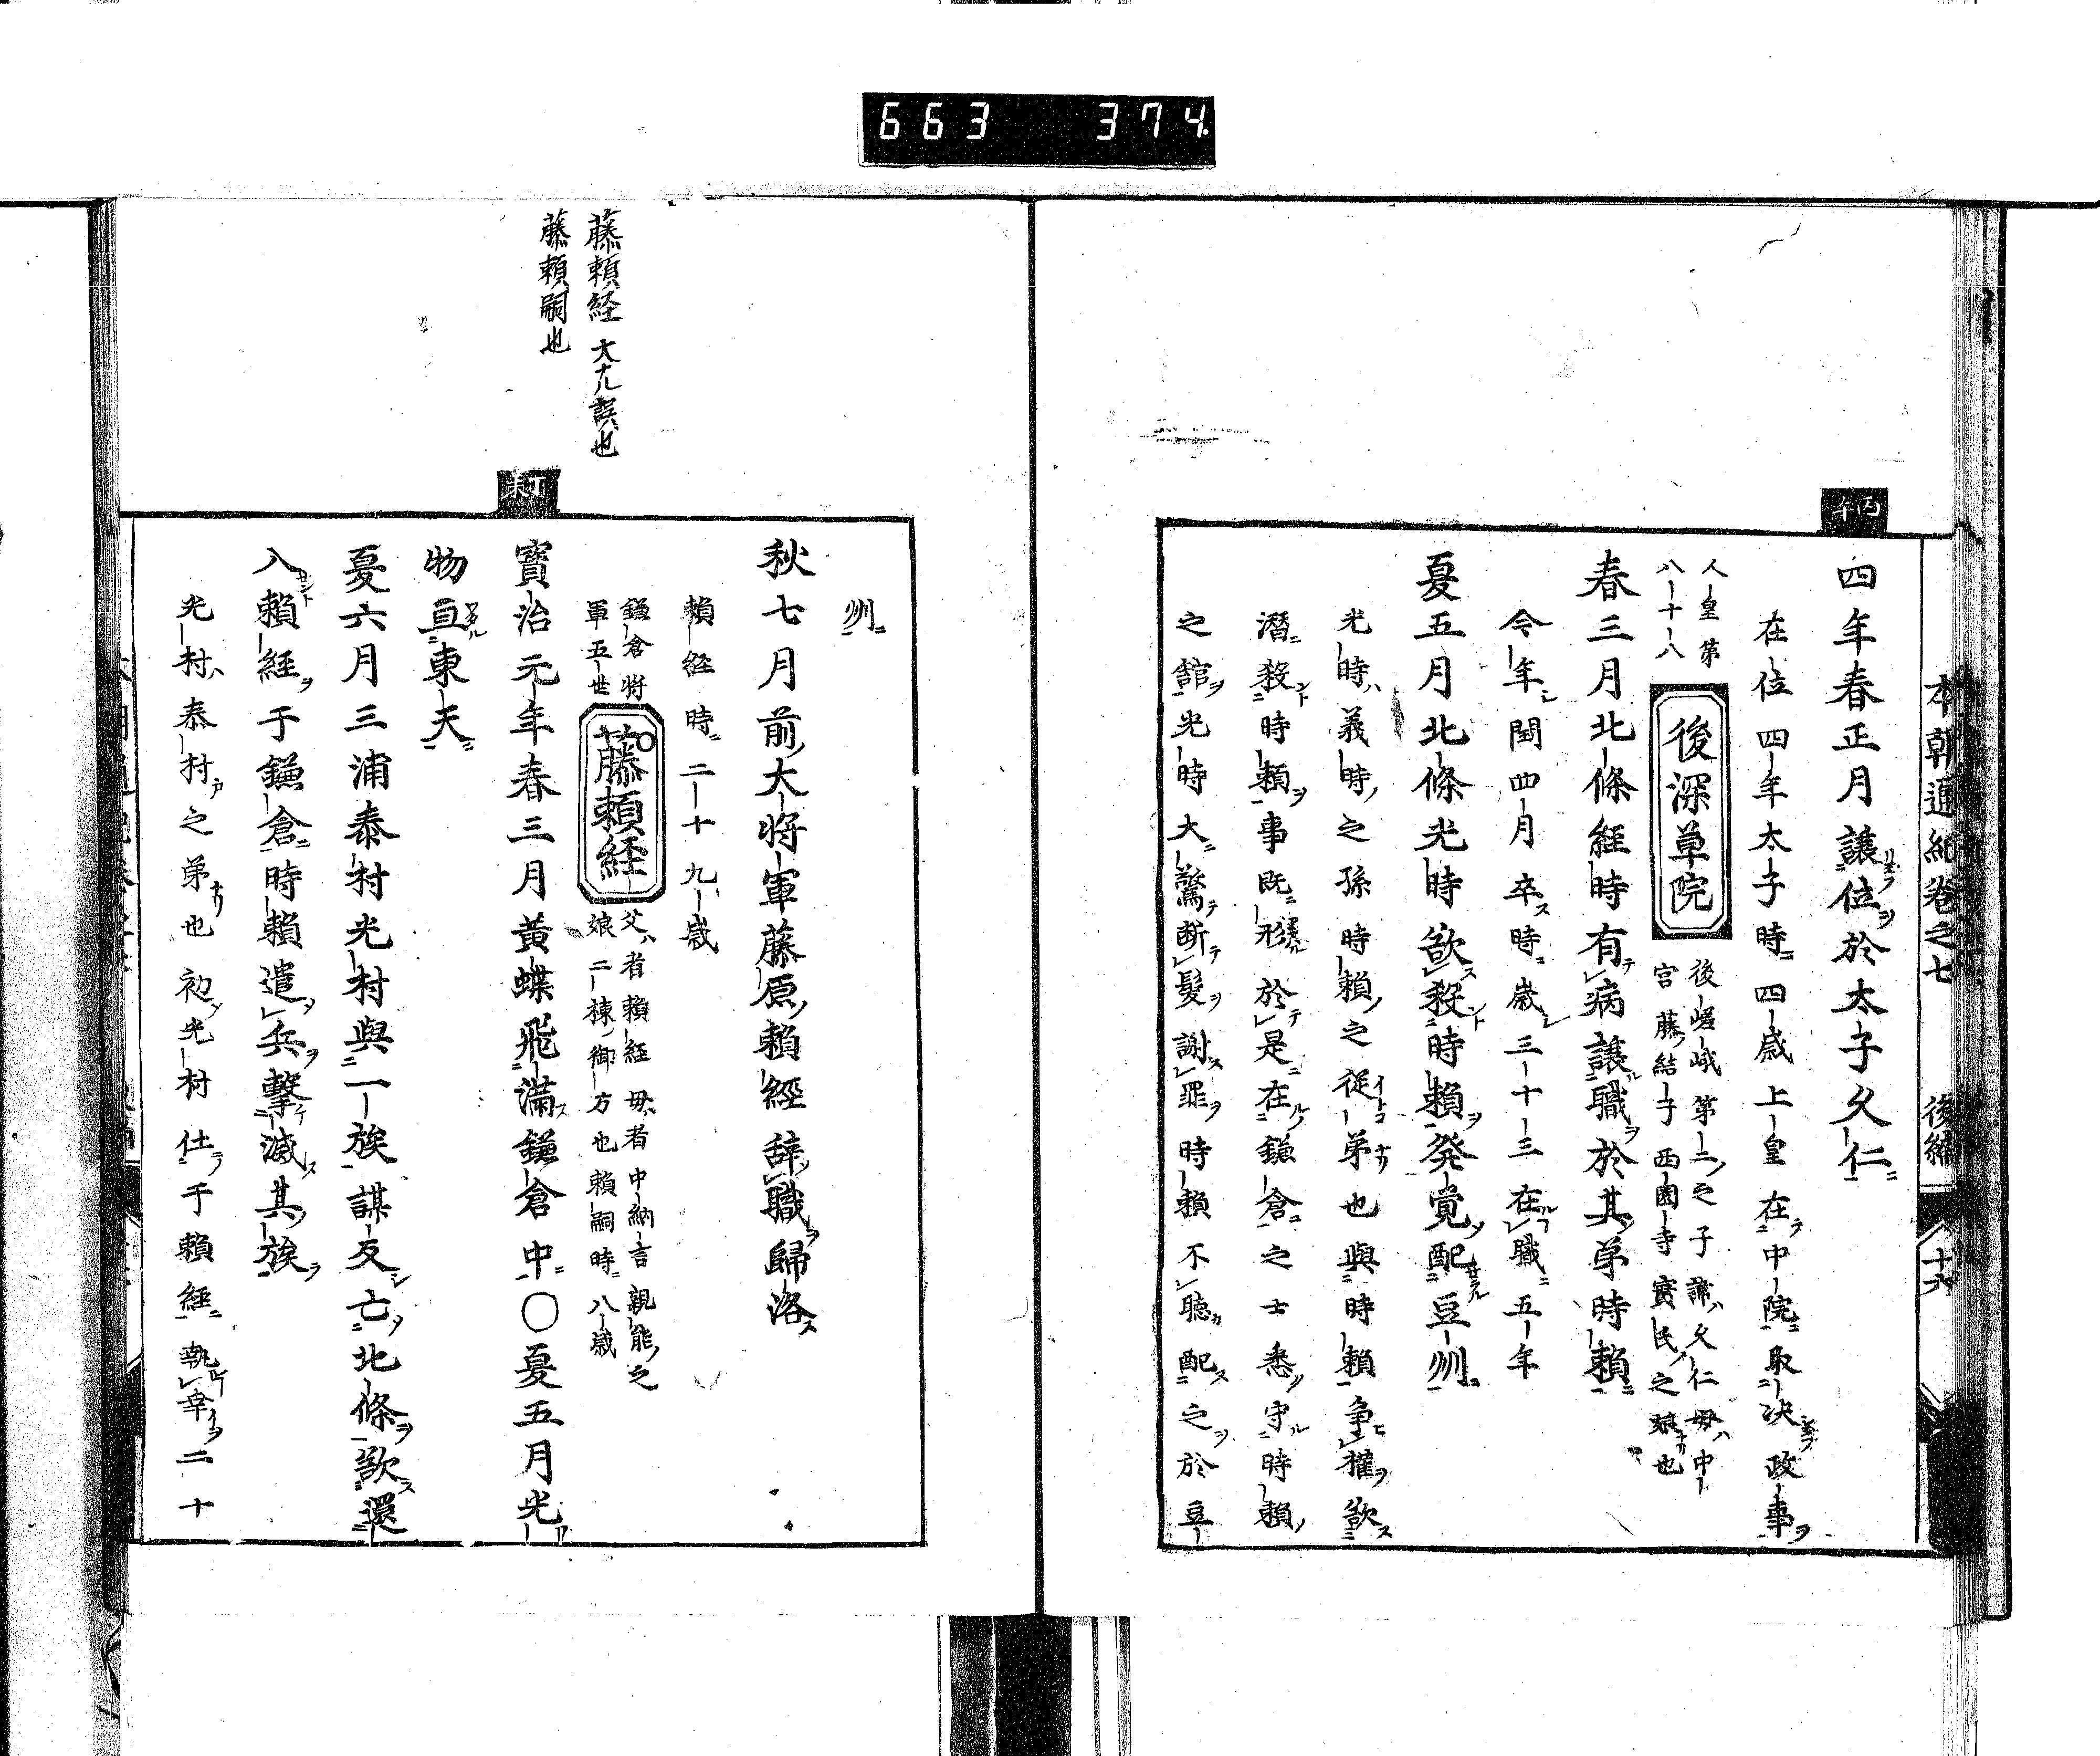 663 374
本朝通紀卷之七 後編 十六
丙午
四年春正月讓位於太子久仁
在位四年太子時四歲上皇在中院取决政事
人皇第八十八
後深草院
後嵯峨第二之子諱久仁母中
宮藤結子西園寺實氏之娘也
春三月北條経時有病讓職於其弟時賴
今年閏四月卒時歲三十三在職五年
夏五月北條光時欲殺時賴発覚配豆州
光時義時之孫時賴之従弟也與時賴争權欲
潜殺時賴事既形於是在鎌倉之士悉守時賴
之舘光時大驚断髮謝罪時賴不聴配之於豆
州
秋七月前大将軍藤原賴經辞職歸洛
賴経時二十九歲
鎌倉将
軍五世
藤賴経
父者賴経母者中納言親能之
娘二棟御方也賴嗣時八歲
藤賴経大ナル誤也
藤賴嗣也
丁未
寳治元年春三月黃蝶飛滿鎌倉中〇夏五月光
物亘東天
夏六月三浦泰村光村與一族謀反亡北條欲還
入賴経于鎌倉時賴遣兵撃滅其族
光村泰村之弟也初光村仕于賴經執幸二十